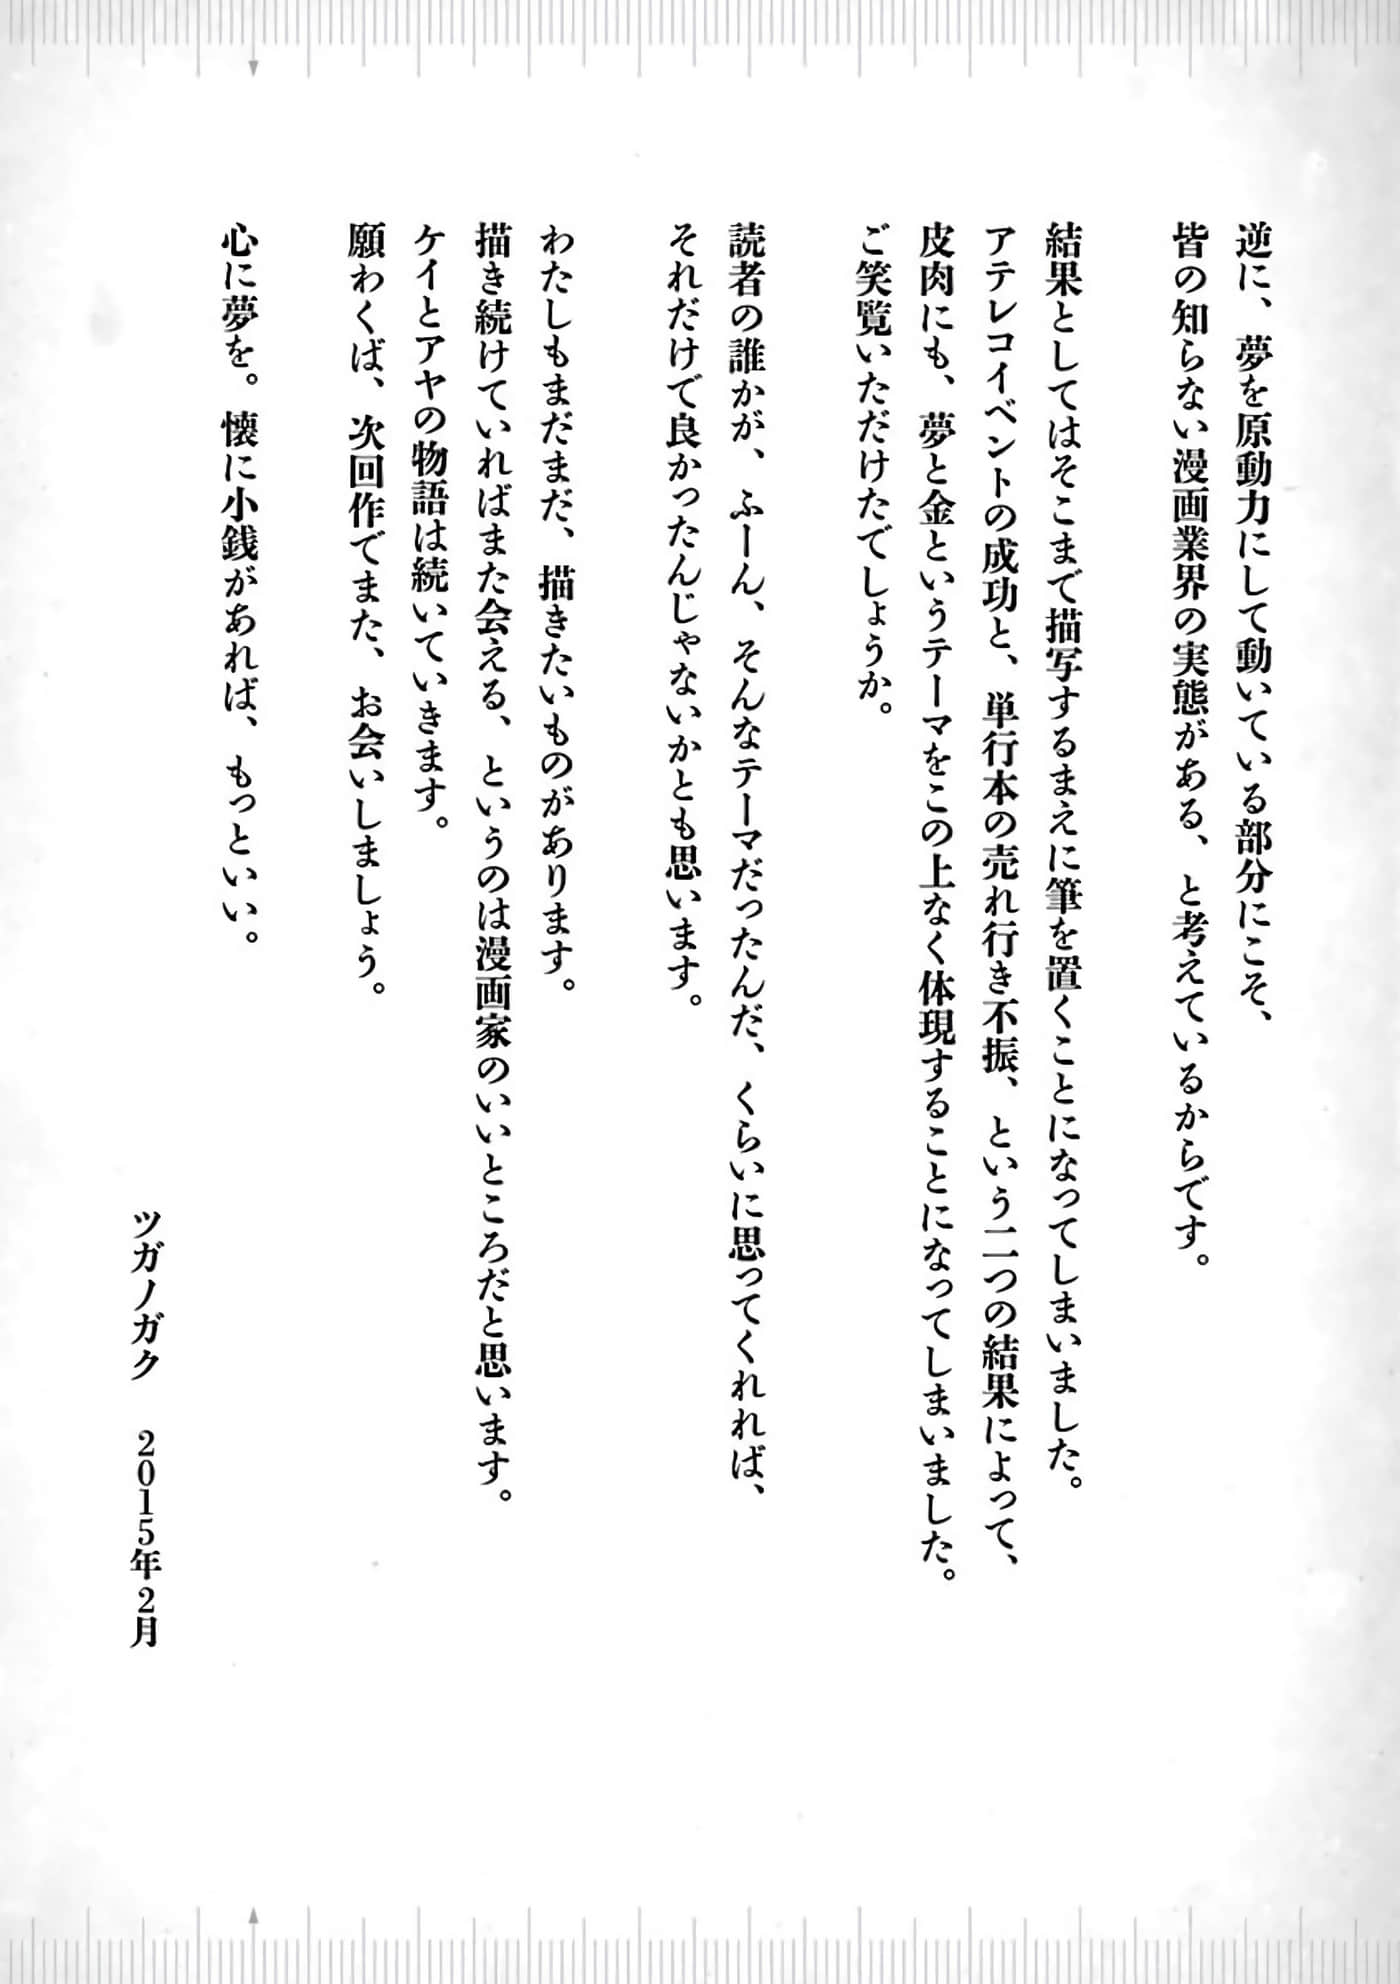 逆に、夢を原動力にして動いている部分にこそ、
皆の知らない漫画業界の実態がある、と考えているからです。
結果としてはそこまで描写するまえに筆を置くことになってしまいました。
アテレコイベントの成功と、単行本の売れ行き不振、という二つの結果によって、
皮肉にも、夢と金というテーマをこの上なく体現することになってしまいました。
ご笑覧いただけたでしょうか。
読者の誰かが、ふーん、そんなテーマだったんだ、くらいに思ってくれれば、
それだけで良かったんじゃないかとも思います。
わたしもまだまだ、描きたいものがあります。
描き続けていればまた会える、というのは漫画家のいいところだと思います。
ケイとアヤの物語は続いていきます。
願わくば、次回作でまた、お会いしましょう。
心に夢を。懐に小銭があれば、もっといい。
ツガノガク 2015年2月